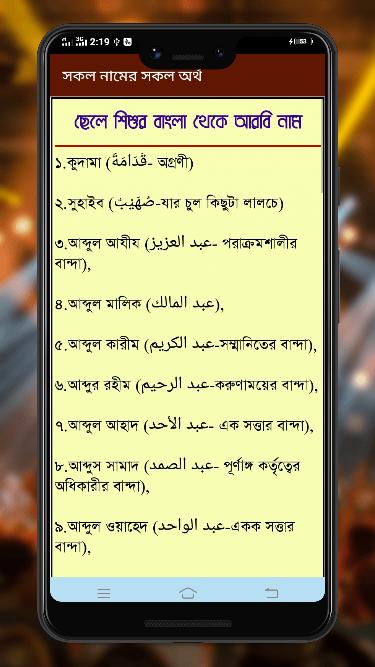 2:19
সকল নামের সকল অর্থ
ছেলে শিশুর বাংলা থেকে আরবি নাম
১.কুদামা (قَدَامَةً- অগ্রণী)
২.সুহাইব (صُهَيْبٌ-যার চুল কিছুটা লালচে)
৩.আব্দুল আযীয (عبد العزيز- পরাক্রমশালীর
বান্দা),
৪.আব্দুল মালিক (عبد المالك),
৫.আব্দুল কারীম (عبد الكريم-সম্মানিতের বান্দা),
৬.আব্দুর রহীম (عبد الرحيم-করুণাময়ের বান্দা),
৭.আব্দুল আহাদ (عبد الأحد- এক সত্তার বান্দা),
৮.আব্দুস সামাদ (عبد الصمد- পূর্ণাঙ্গ কর্তৃত্বের
অধিকারীর বান্দা),
৯.আব্দুল ওয়াহেদ (عبد الواحد-একক সত্তার
বান্দা),